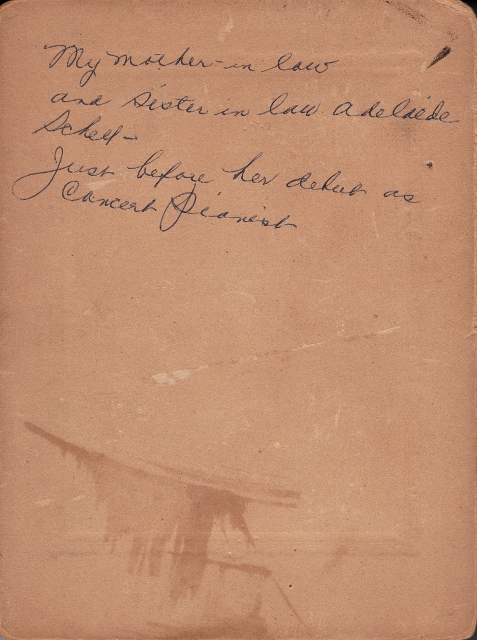 My mother-in law
and sister in law Adelaide
Schell-
Just before her debut as
Concert Pianist